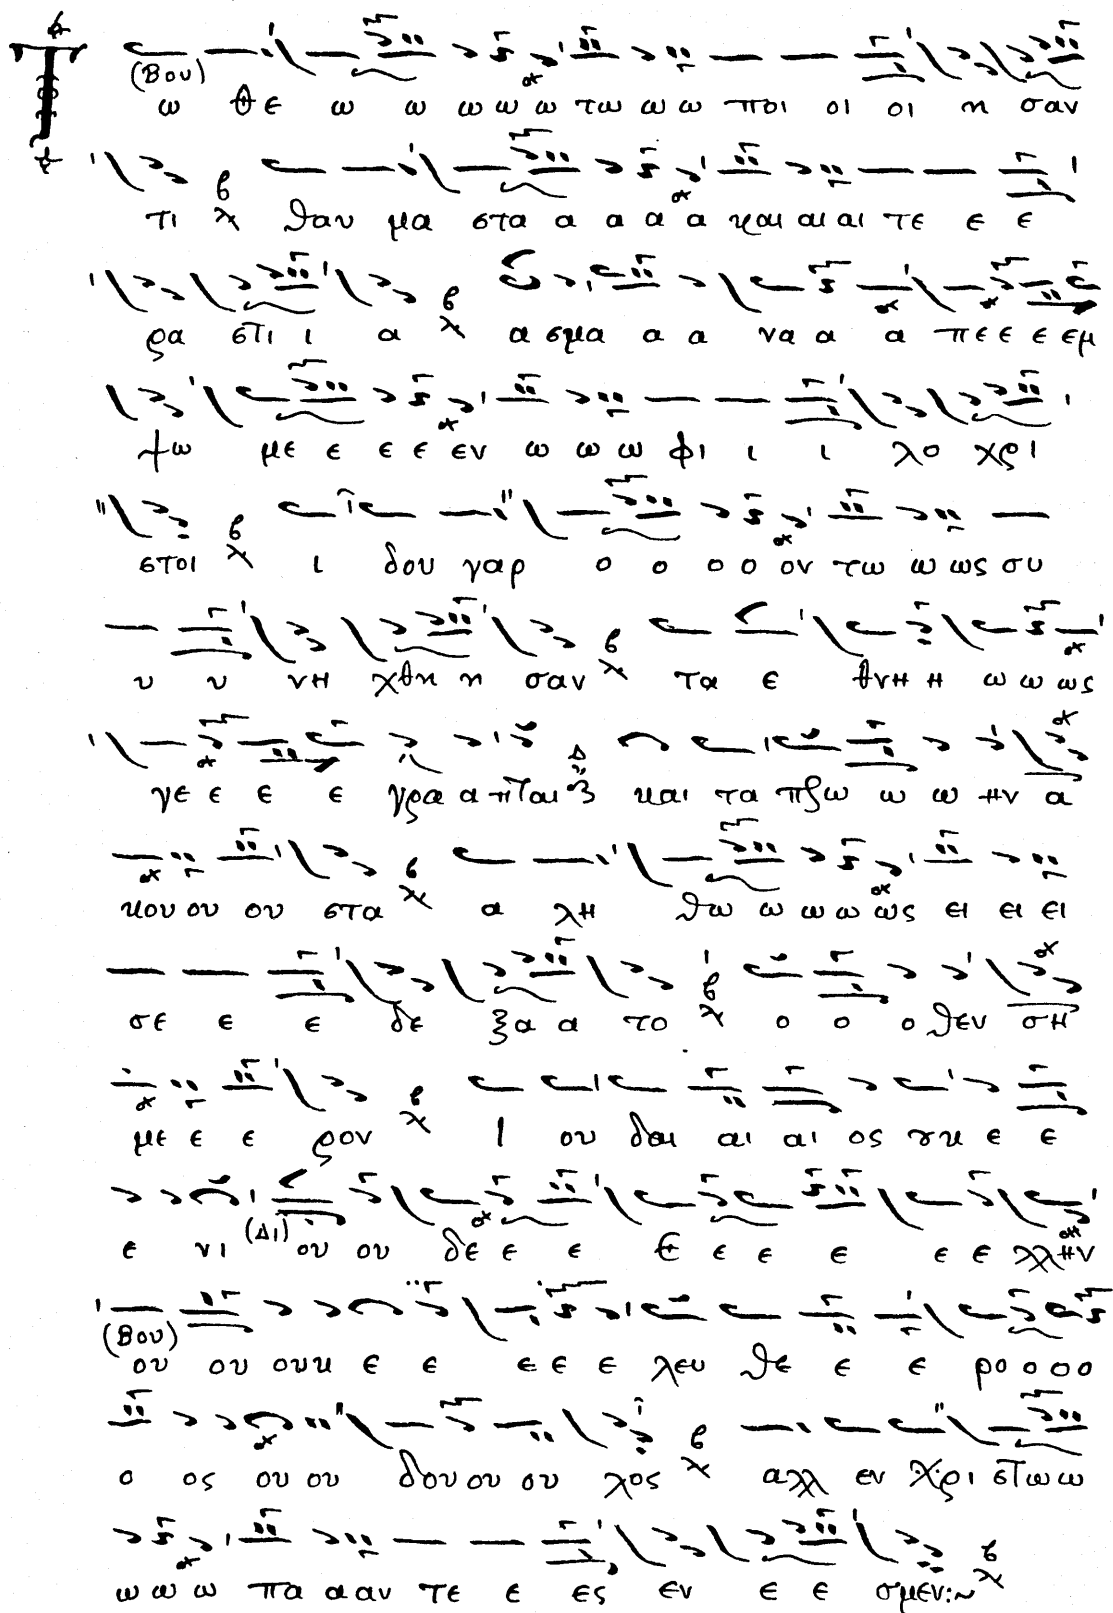 Τ (Βου) ω θε ω ω ω ω ω τω ω ω ποι οι οι η σαν
τι θαυ μα στα α α α α και αι αι τε ε ε
ρα στι ι α α σμα α α να α α πε ε ε εμ
ψω με ε ε ε εν ω ω ω φι ι ι λο χρι
στοι ι δου γαρ ο ο ο ο ον τω ω ως συ
υ υ νη χθη η σαν τα ε θνη η ω ω ως
γε ε ε ε γρα α πται και τα πρω ω ω ην α
κου ου ου στα α λη θω ω ω ω ως ει ει ει
σε ε ε δε ξα α α το ο ο ο θεν ση
με ε ε ρον Ι ου δαι αι αι ος ουκ ε ε
ε νι (Δι) ου ου δε ε ε Ε ε ε ε ε ε λλην
(Βου) ου ου ουκ ε ε ε ε ε λευ θε ε ε ρο ο ο ο
ο ος ου ου δου ου ου λος αλλ εν Χρι στω ω
ω ω ω πα α αν τε ε ες εν ε ε σμεν:~